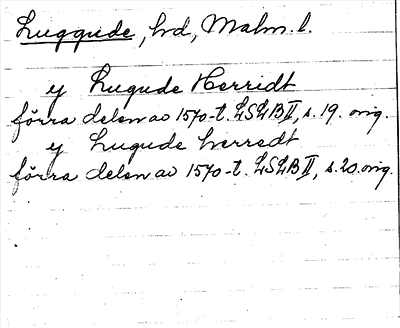 Luggude, hd, Malm. l.
y Lugude Herridt
förra delen av 1570-t. LSLB II, s. 19. orig.
y Lugude herredt
förra delen av 1570-t. LSLB II, s. 20. orig.